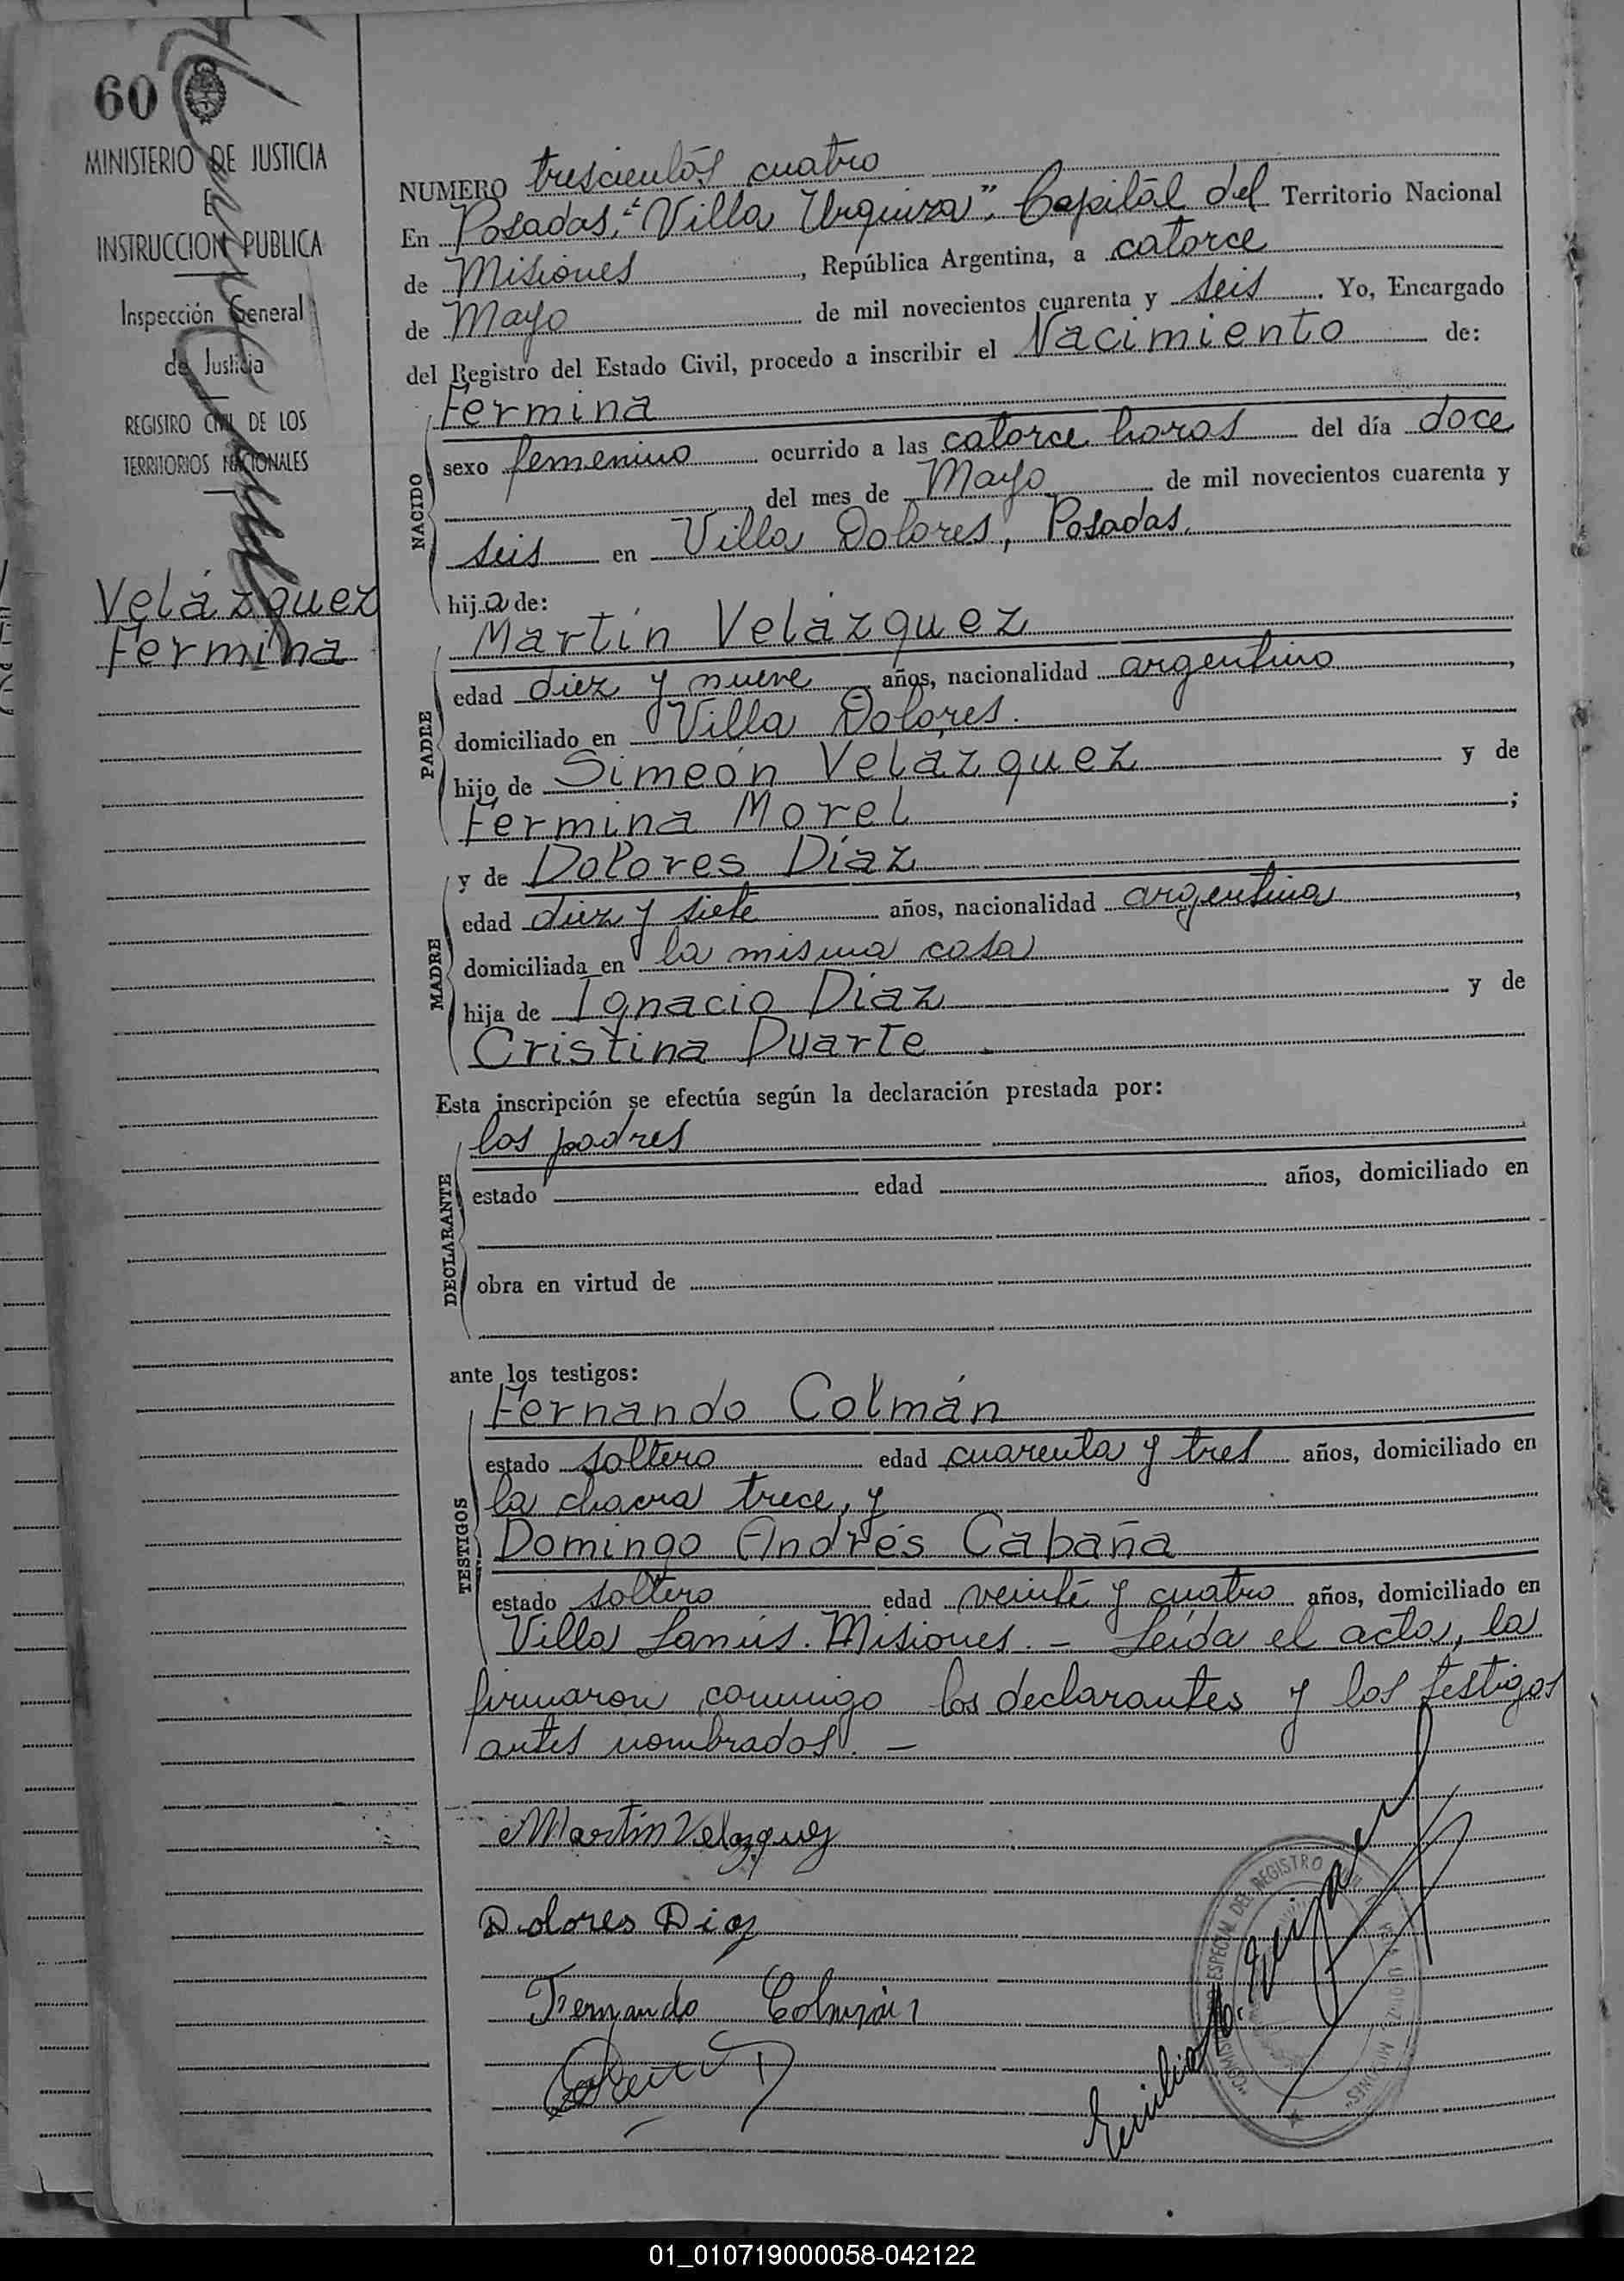 60
MINISTERIO DE JUSTICIA
E
INSTRUCCION PUBLICA
Inspección General
de Justicia
REGISTRO CIVIL DE LOS
TERRITORIOS NACIONALES
Velázquez
Fermina
NUMERO trescientos cuatro
En Posadas, "Villa Urquiza", Capital del Territorio Nacional
de Misiones, República Argentina, a catorce
de Mayo de mil novecientos cuarenta y seis. Yo, Encargado
del Registro del Estado Civil, procedo a inscribir el Nacimiento de:
NACIDO
Fermina
sexo femenino ocurrido a las catorce horas del día doce
del mes de Mayo de mil novecientos cuarenta y
seis en Villa Dolores, Posadas,
hija de:
PADRE
Martín Velázquez
edad diez y nueve años, nacionalidad argentino,
domiciliado en Villa Dolores.
hijo de Simeón Velázquez y de
Fermina Morel;
MADRE
y de Dolores Díaz
edad diez y siete años, nacionalidad argentina,
domiciliada en la misma casa
hija de Ignacio Díaz y de
Cristina Duarte.
Esta inscripción se efectúa según la declaración prestada por:
DECLARANTE
los padres
estado edad años, domiciliado en
obra en virtud de
ante los testigos:
TESTIGOS
Fernando Colmán
estado soltero edad cuarenta y tres años, domiciliado en
la chacra trece, y
Domingo Andrés Cabaña
estado soltero edad veinte y cuatro años, domiciliado en
Villa Lanús. Misiones. - Leída el acta, la
firmaron conmigo los declarantes y los testigos
antes nombrados. -
Martin Velazquez
Dolores Diaz
Fernando Colmán
ESPECIAL DEL REGISTRO
01_010719000058-042122